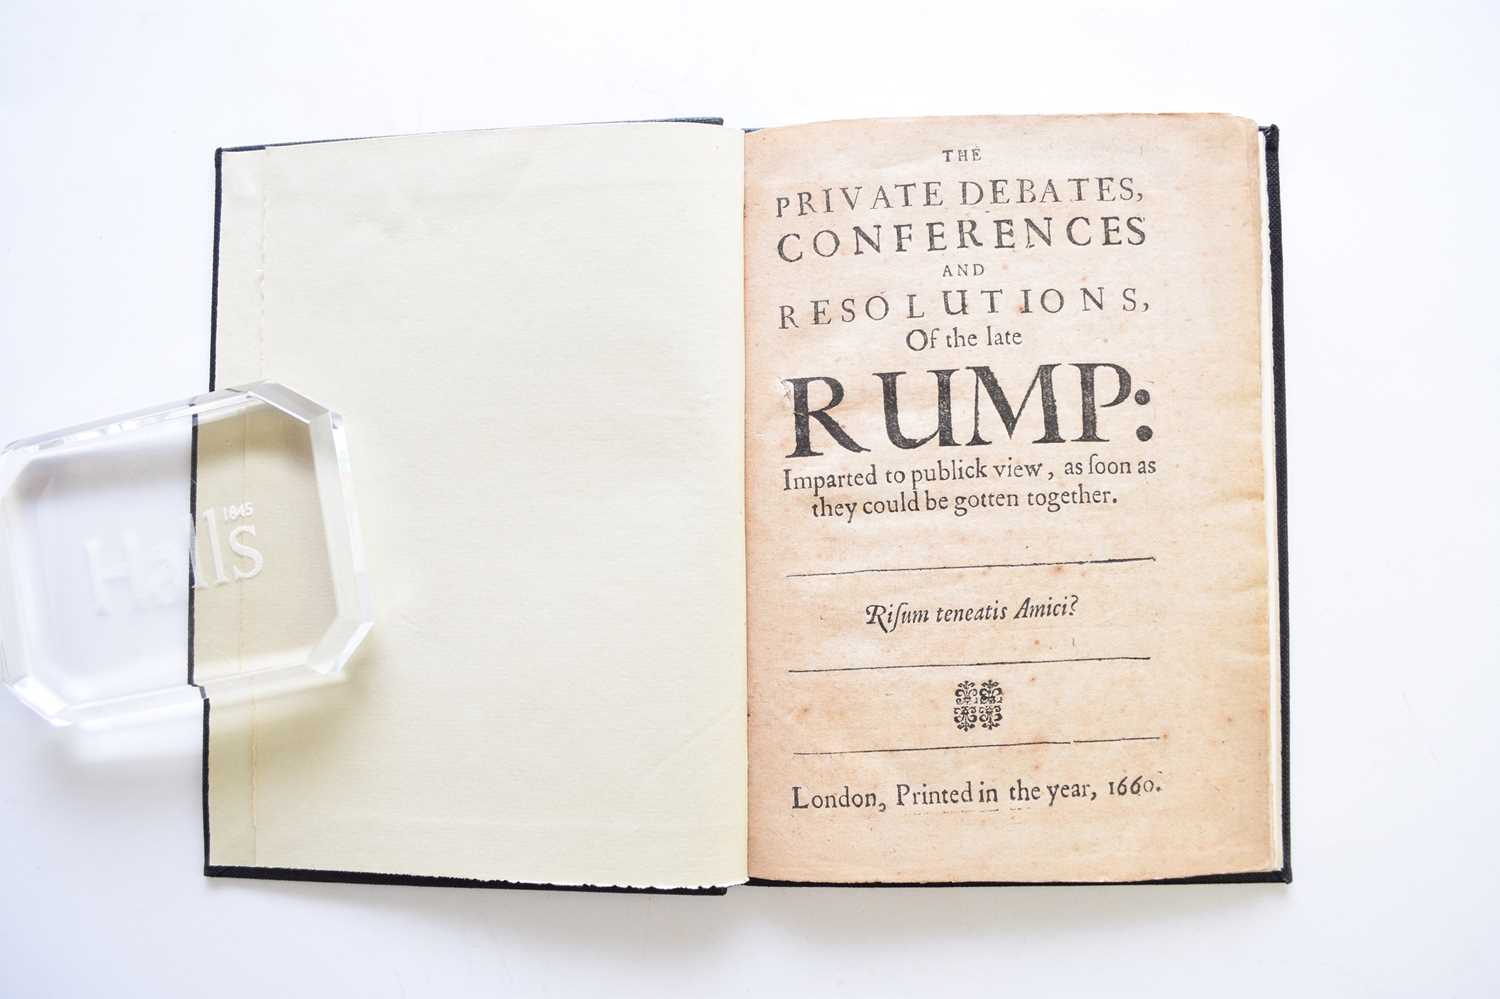 1845
Halls
THE
PRIVATE DEBATES,
CONFERENCES
AND
RESOLUTIONS,
Of the late
RUMP:
Imparted to publick view, as ſoon as
they could be gotten together.
Riſum teneatis Amici?
London, Printed in the year, 1660.